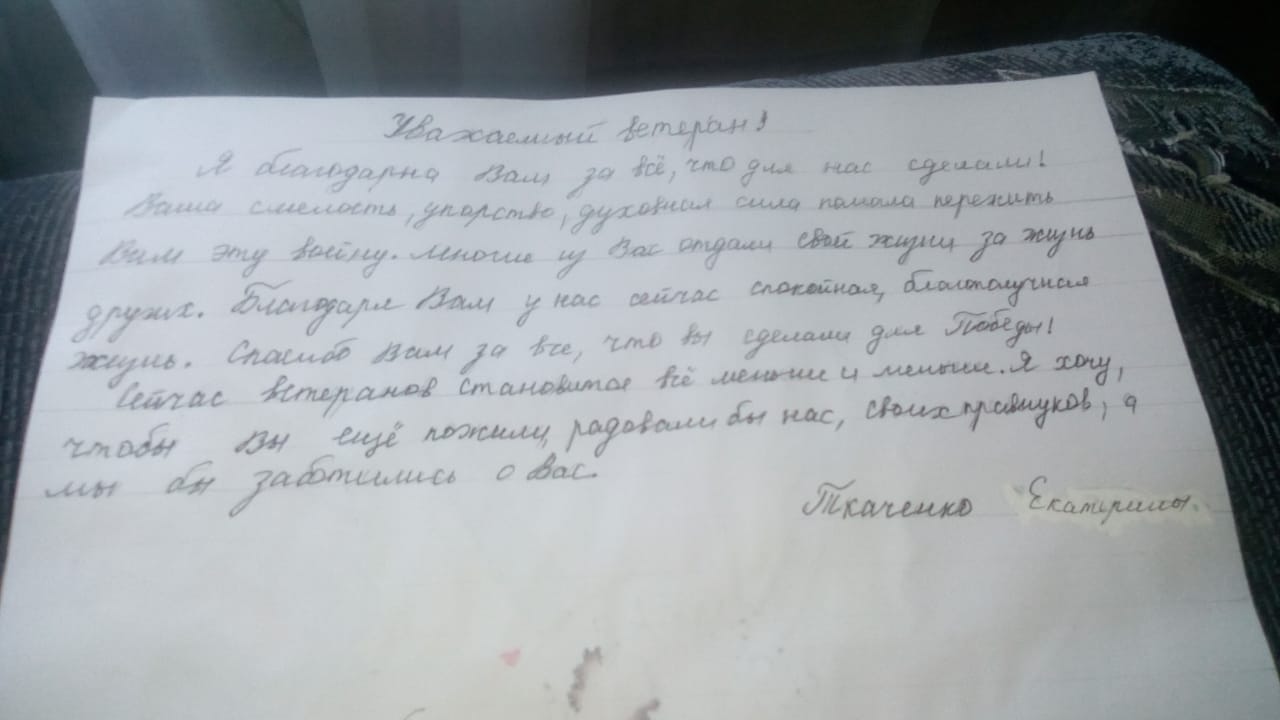 Уважаемый ветеран!
Я благодарна Вам за всё, что для нас сделали!
Ваша смелость, упорство, духовная сила помогла пережить
Вам эту войну. Многие из Вас отдали свой жизни за жизнь
других. Благодаря Вам у нас сейчас спокойная, благополучная
жизнь. Спасибо Вам за все, что вы сделали для Победы!
Сейчас ветеранов становится всё меньше и меньше. Я хочу,
чтобы Вы ещё пожили, радовали бы нас, своих правнуков, а
мы бы заботились о Вас.
Ткаченко Екатерины.